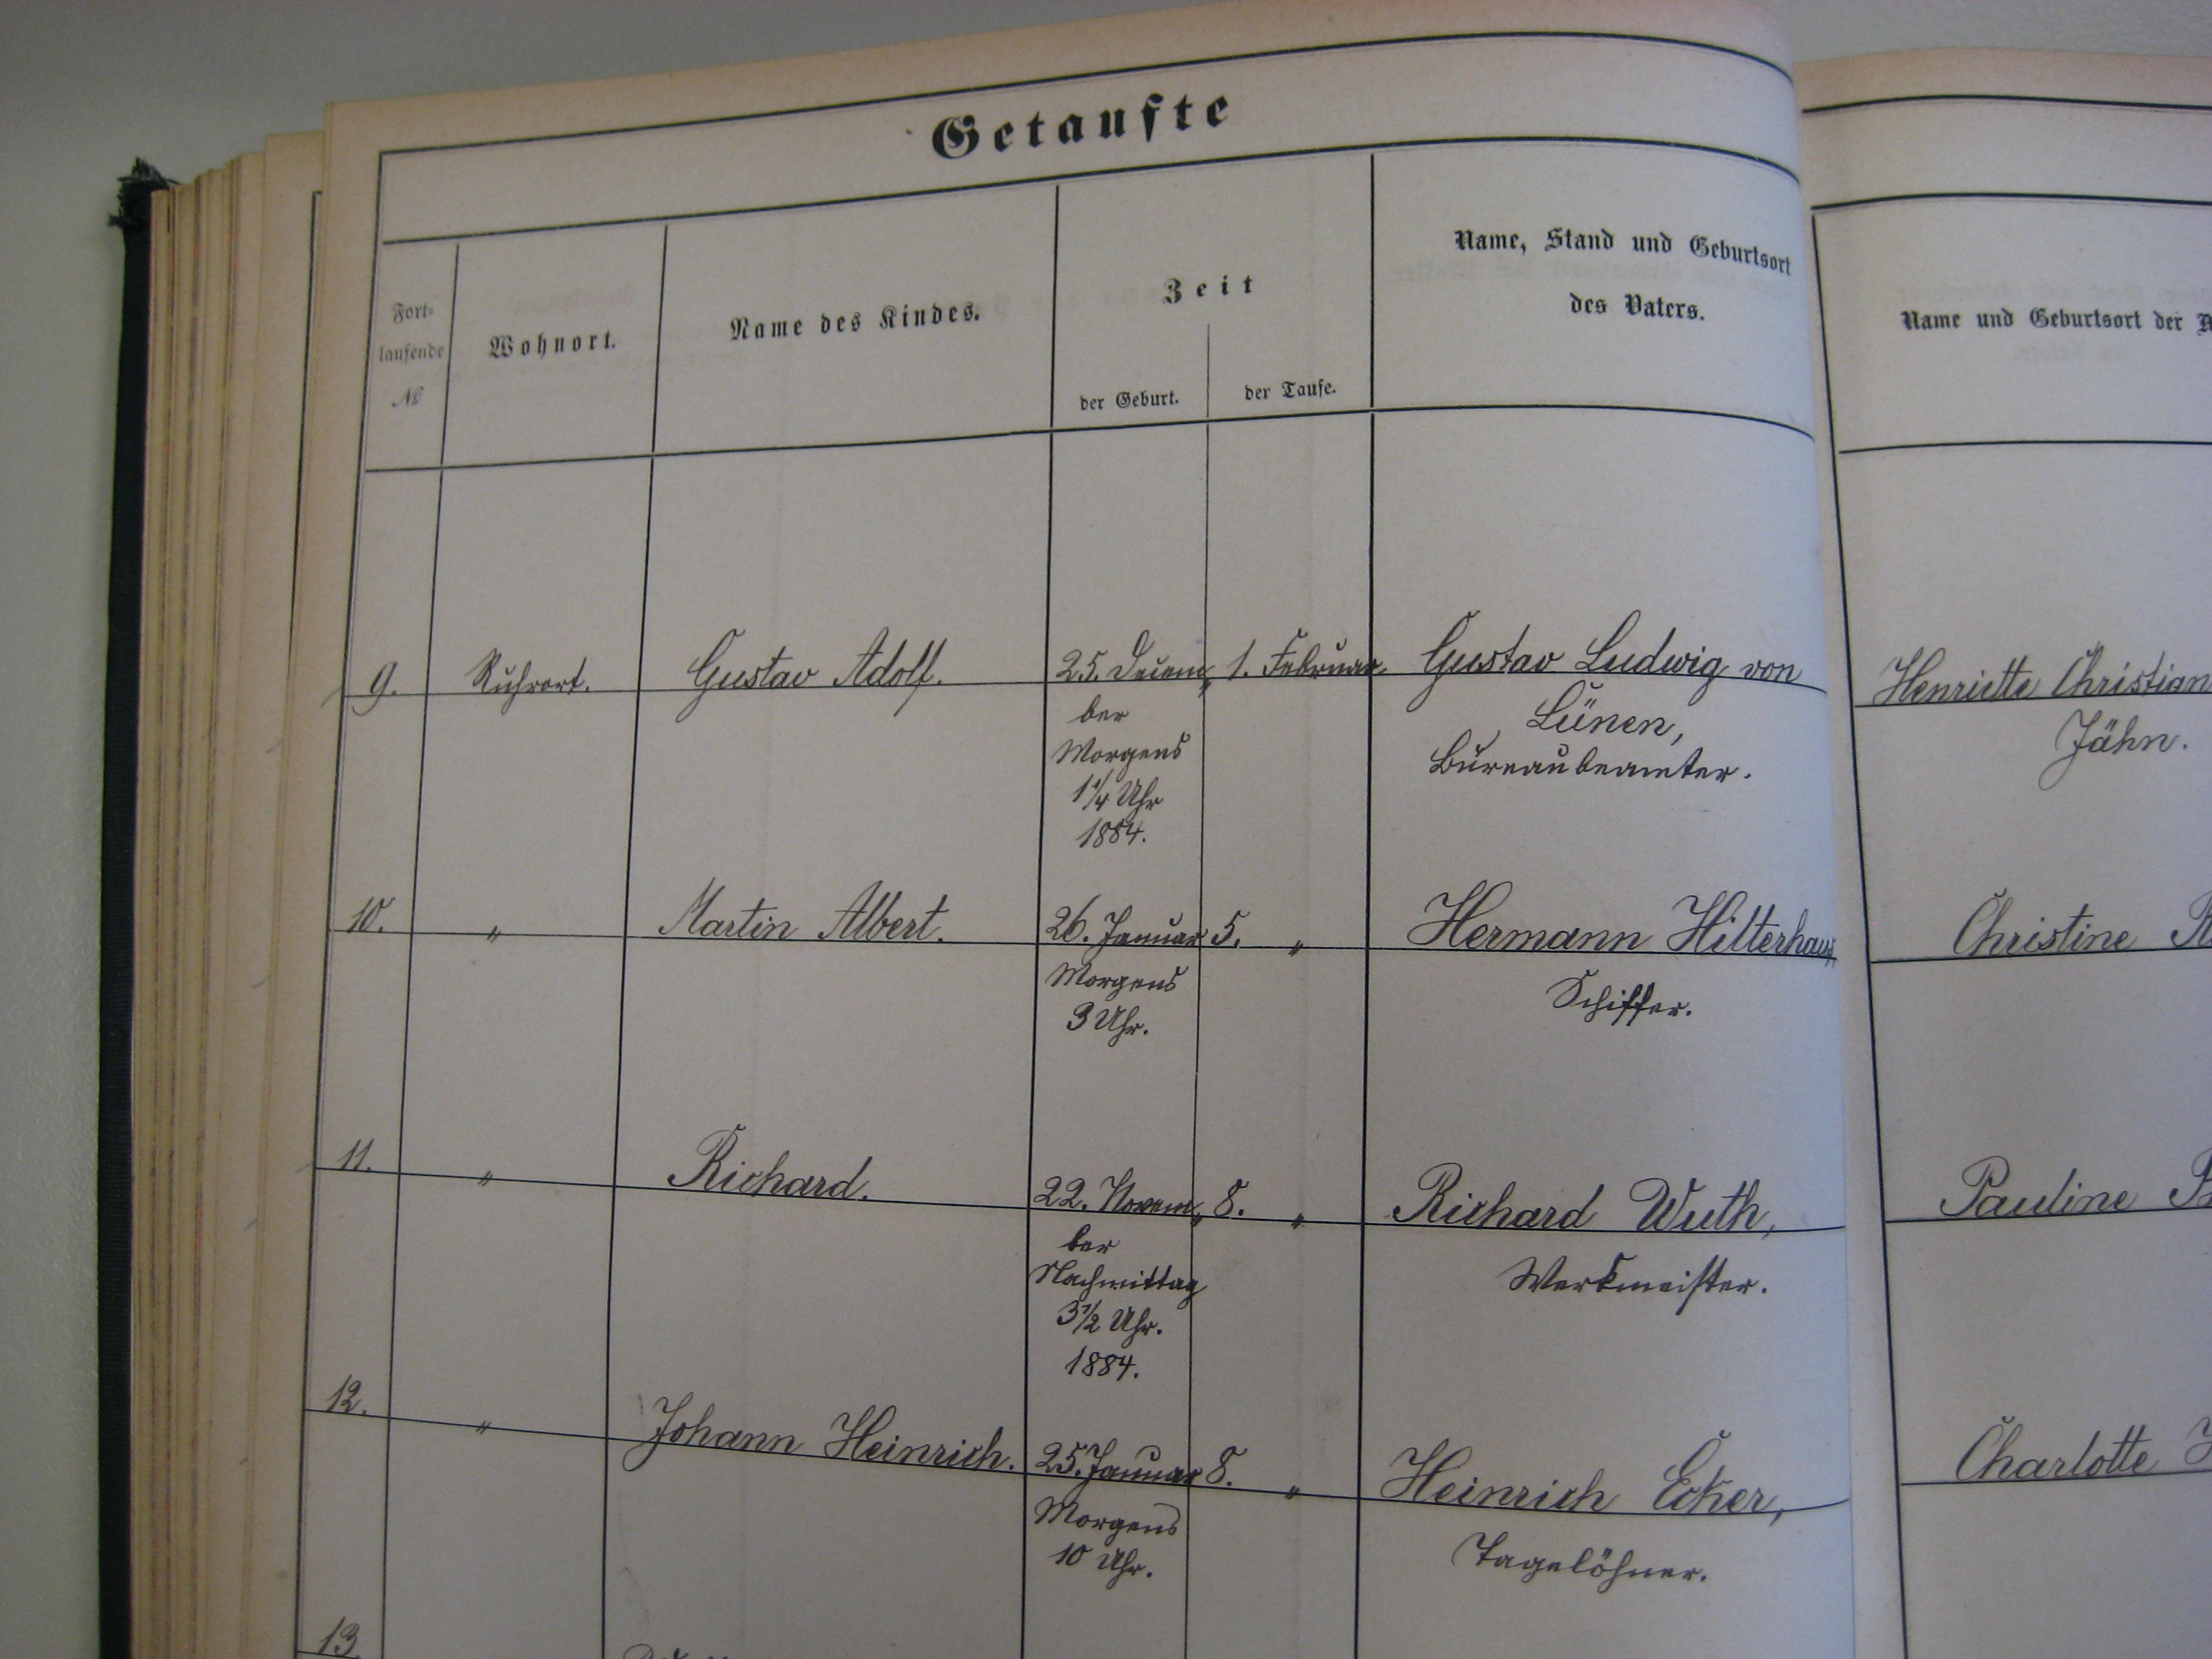 Getaufte
Fort=
laufende
№
Wohnort.
Name des Kindes.
Zeit
der Geburt.
der Taufe.
Name, Stand und Geburtsort
des Vaters.
Name und Geburtsort der
9.
Ruhrort.
Gustav Adolf.
25. Decem„
ber
Morgens
1¼ Uhr
1884.
1. Februar.
Gustav Ludwig von
Lünen,
Bureaubeamter.
Henriette Christian
Jähn.
10.
"
Martin Albert.
26. Januar
Morgens
3 Uhr.
5. "
Hermann Hilterhaus,
Schiffer.
Christine
11.
"
Richard.
22. Novem„
ber
Nachmittag
3½ Uhr.
1884.
8. "
Richard Wuth,
Werkmeister.
Pauline
12.
"
Johann Heinrich.
25. Januar
Morgens
10 Uhr.
8. "
Heinrich Ecker,
Tagelöhner.
Charlotte
13.